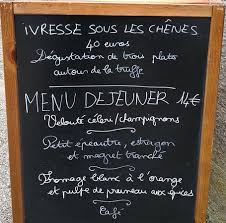 IVRESSE SOUS LES CHÊNES
40 euros
Dégustation de trois plats
autour de la truffe
MENU DEJEUNER 14€
Velouté céleri/champignons
Petit épeautre, estragon
et magret tranché
Fromage blanc à l'orange
et pulpe de pruneau aux épices
Café